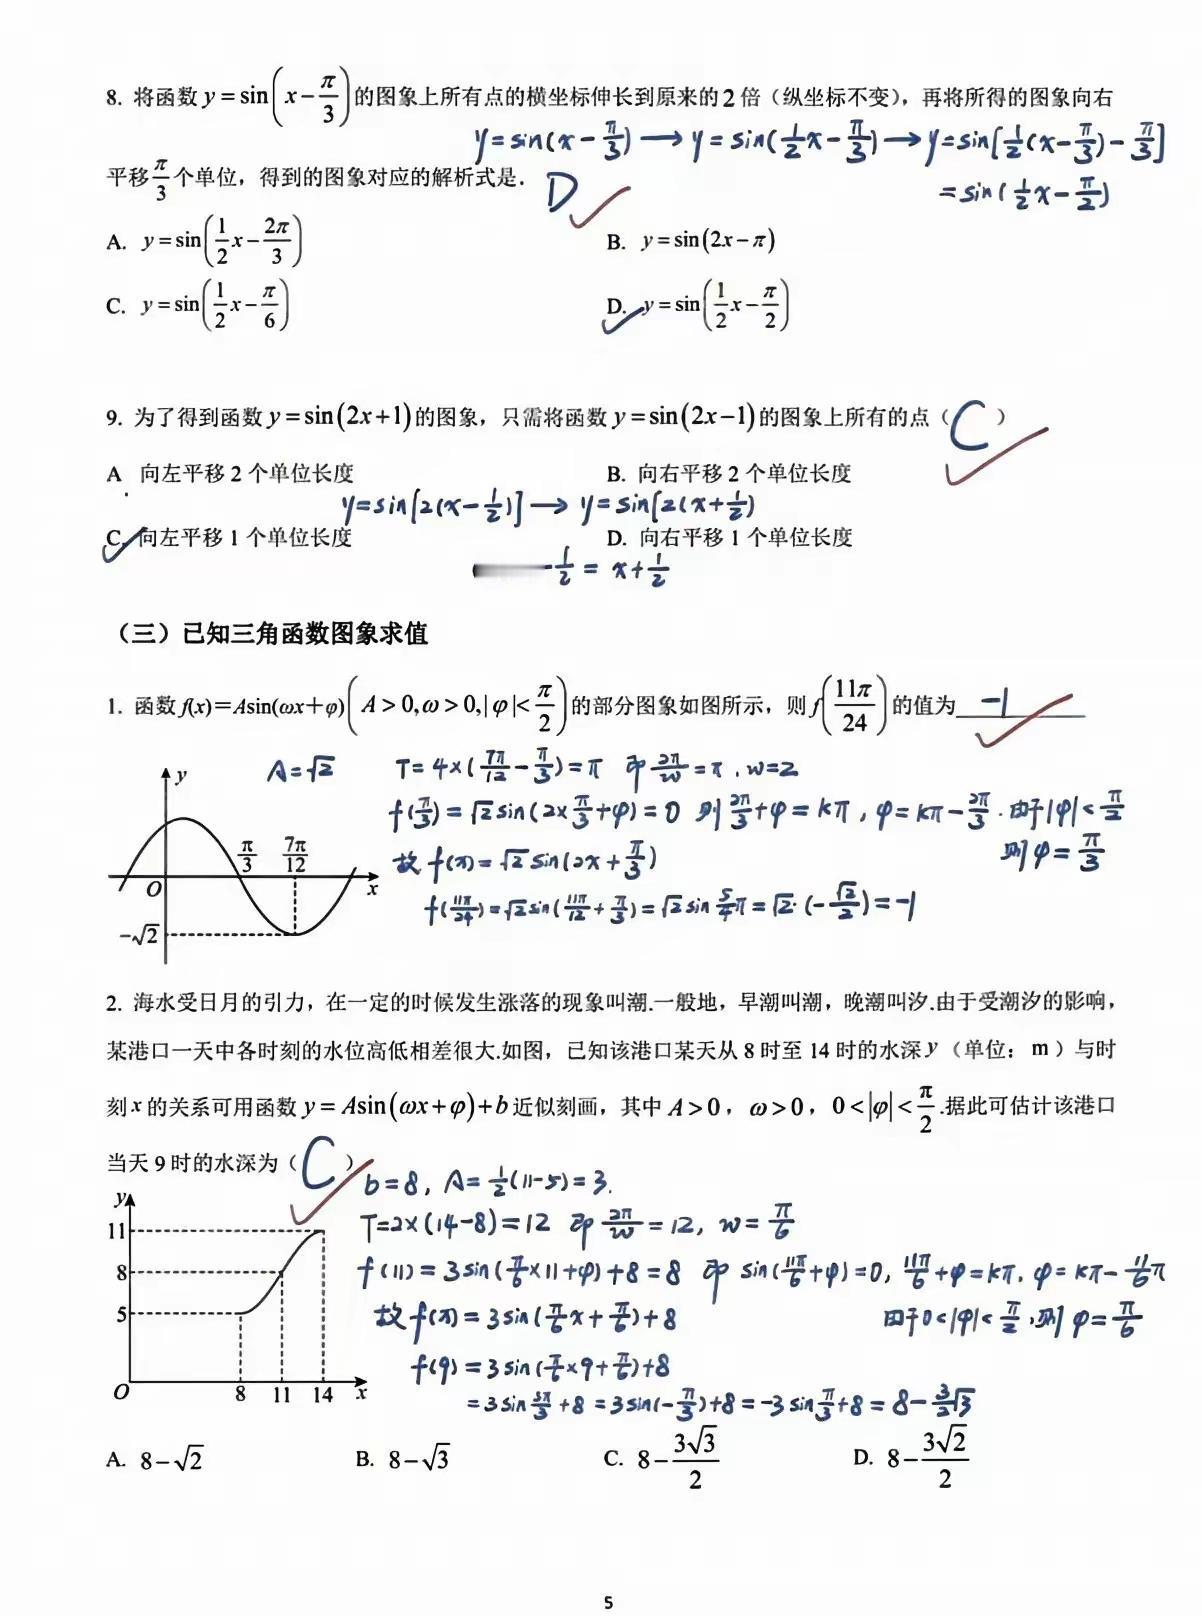 8. 将函数 y=sin(x-π/3) 的图象上所有点的横坐标伸长到原来的2倍（纵坐标不变），再将所得的图象向右
y=sin(x-π/3)→y=sin(1/2x-π/3)→y=sin[1/2(x-π/3)-π/3]
平移π/3个单位，得到的图象对应的解析式是. D
=sin(1/2x-π/2)
A. y=sin(1/2x-2π/3) B. y=sin(2x-π)
C. y=sin(1/2x-π/6) D. y=sin(1/2x-π/2)
9. 为了得到函数 y=sin(2x+1) 的图象，只需将函数 y=sin(2x-1) 的图象上所有的点（C）
A 向左平移 2 个单位长度 B. 向右平移 2 个单位长度
y=sin[2(x-1/2)]→y=sin[2(x+1/2)
C. 向左平移 1 个单位长度 D. 向右平移 1 个单位长度
-1/2=x+1/2
（三）已知三角函数图象求值
1. 函数 f(x)=Asin(ωx+φ)(A>0,ω>0,|φ|<π/2) 的部分图象如图所示，则 f(11π/24) 的值为 -1
y
A=√2 T=4×(7π/12-π/3)=π 即2π/w=π,w=2
f(π/3)=√2sin(2×π/3+φ)=0 则2π/3+φ=kπ,φ=kπ-2π/3.由于|φ|<π/2
π/3 7π/12
故f(x)=√2sin(2x+π/3) 则φ=π/3
O x
f(11π/24)=√2sin(11π/12+π/3)=√2sin5/4π=√2·(-√2/2)=-1
-√2
2. 海水受日月的引力，在一定的时候发生涨落的现象叫潮.一般地，早潮叫潮，晚潮叫汐.由于受潮汐的影响，
某港口一天中各时刻的水位高低相差很大.如图，已知该港口某天从 8 时至 14 时的水深 y（单位：m）与时
刻 x 的关系可用函数 y=Asin(ωx+φ)+b 近似刻画，其中 A>0，ω>0，0<|φ|<π/2.据此可估计该港口
当天 9 时的水深为（C）
b=8,A=1/2(11-5)=3.
y
T=2×(14-8)=12 即2π/w=12,w=π/6
11
f(11)=3sin(π/6×11+φ)+8=8 即sin(11π/6+φ)=0,11π/6+φ=kπ.φ=kπ-11/6π
8
故f(x)=3sin(π/6x+π/6)+8 由于0<|φ|<π/2,则φ=π/6
5
f(9)=3sin(π/6×9+π/6)+8
O 8 11 14 x
=3sin5π/3+8=3sin(-π/3)+8=-3sinπ/3+8=8-3/2√3
A. 8-√2 B. 8-√3 C. 8-3√3/2 D. 8-3√2/2
5